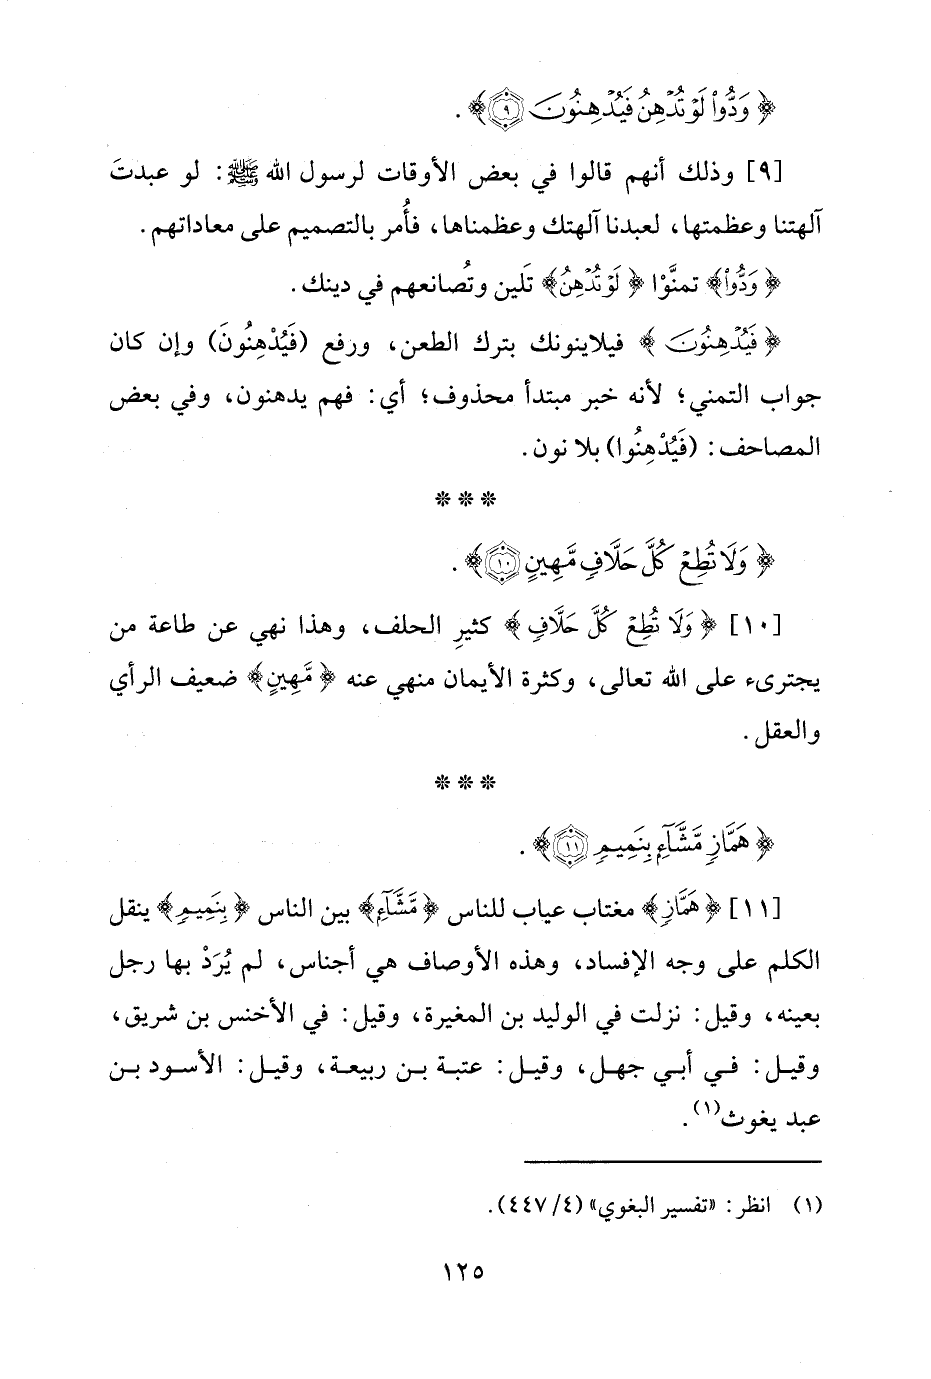 ﴿ وَدُّوا۟ لَوْ تُدْهِنُ فَيُدْهِنُونَ ۝٩﴾ .
[٩] وذلك أنهم قالوا في بعض الأوقات لرسول الله ﷺ: لو عبدتَ
آلهتنا وعظمتها، لعبدنا آلهتك وعظمناها، فأُمر بالتصميم على معاداتهم.
﴿ وَدُّوا۟﴾ تمنَّوْا ﴿ لَوْ تُدْهِنُ﴾ تَلين وتُصانعهم في دينك.
﴿ فَيُدْهِنُونَ ﴾ فيلاينونك بترك الطعن، ورفع (فَيُدْهِنُونَ) وإن كان
جواب التمني؛ لأنه خبر مبتدأ محذوف؛ أي: فهم يدهنون، وفي بعض
المصاحف: (فَيُدْهِنُوا) بلا نون.
* * *
﴿ وَلَا تُطِعْ كُلَّ حَلَّافٍ مَّهِينٍ ۝١٠﴾ .
[١٠] ﴿ وَلَا تُطِعْ كُلَّ حَلَّافٍ ﴾ كثيرِ الحلف، وهذا نهي عن طاعة من
يجترىء على الله تعالى، وكثرة الأيمان منهي عنه ﴿ مَّهِينٍ﴾ ضعيف الرأي
والعقل.
* * *
﴿ هَمَّازٍ مَّشَّآءٍۭ بِنَمِيمٍ ۝١١﴾ .
[١١] ﴿ هَمَّازٍ﴾ مغتاب عياب للناس ﴿ مَّشَّآءٍۭ﴾ بين الناس ﴿ بِنَمِيمٍ﴾ ينقل
الكلم على وجه الإفساد، وهذه الأوصاف هي أجناس، لم يُرَدْ بها رجل
بعينه، وقيل: نزلت في الوليد بن المغيرة، وقيل: في الأخنس بن شريق،
وقيل: في أبي جهل، وقيل: عتبة بن ربيعة، وقيل: الأسود بن
عبد يغوث(١).
(١) انظر: «تفسير البغوي» (٤/ ٤٤٧).
١٢٥